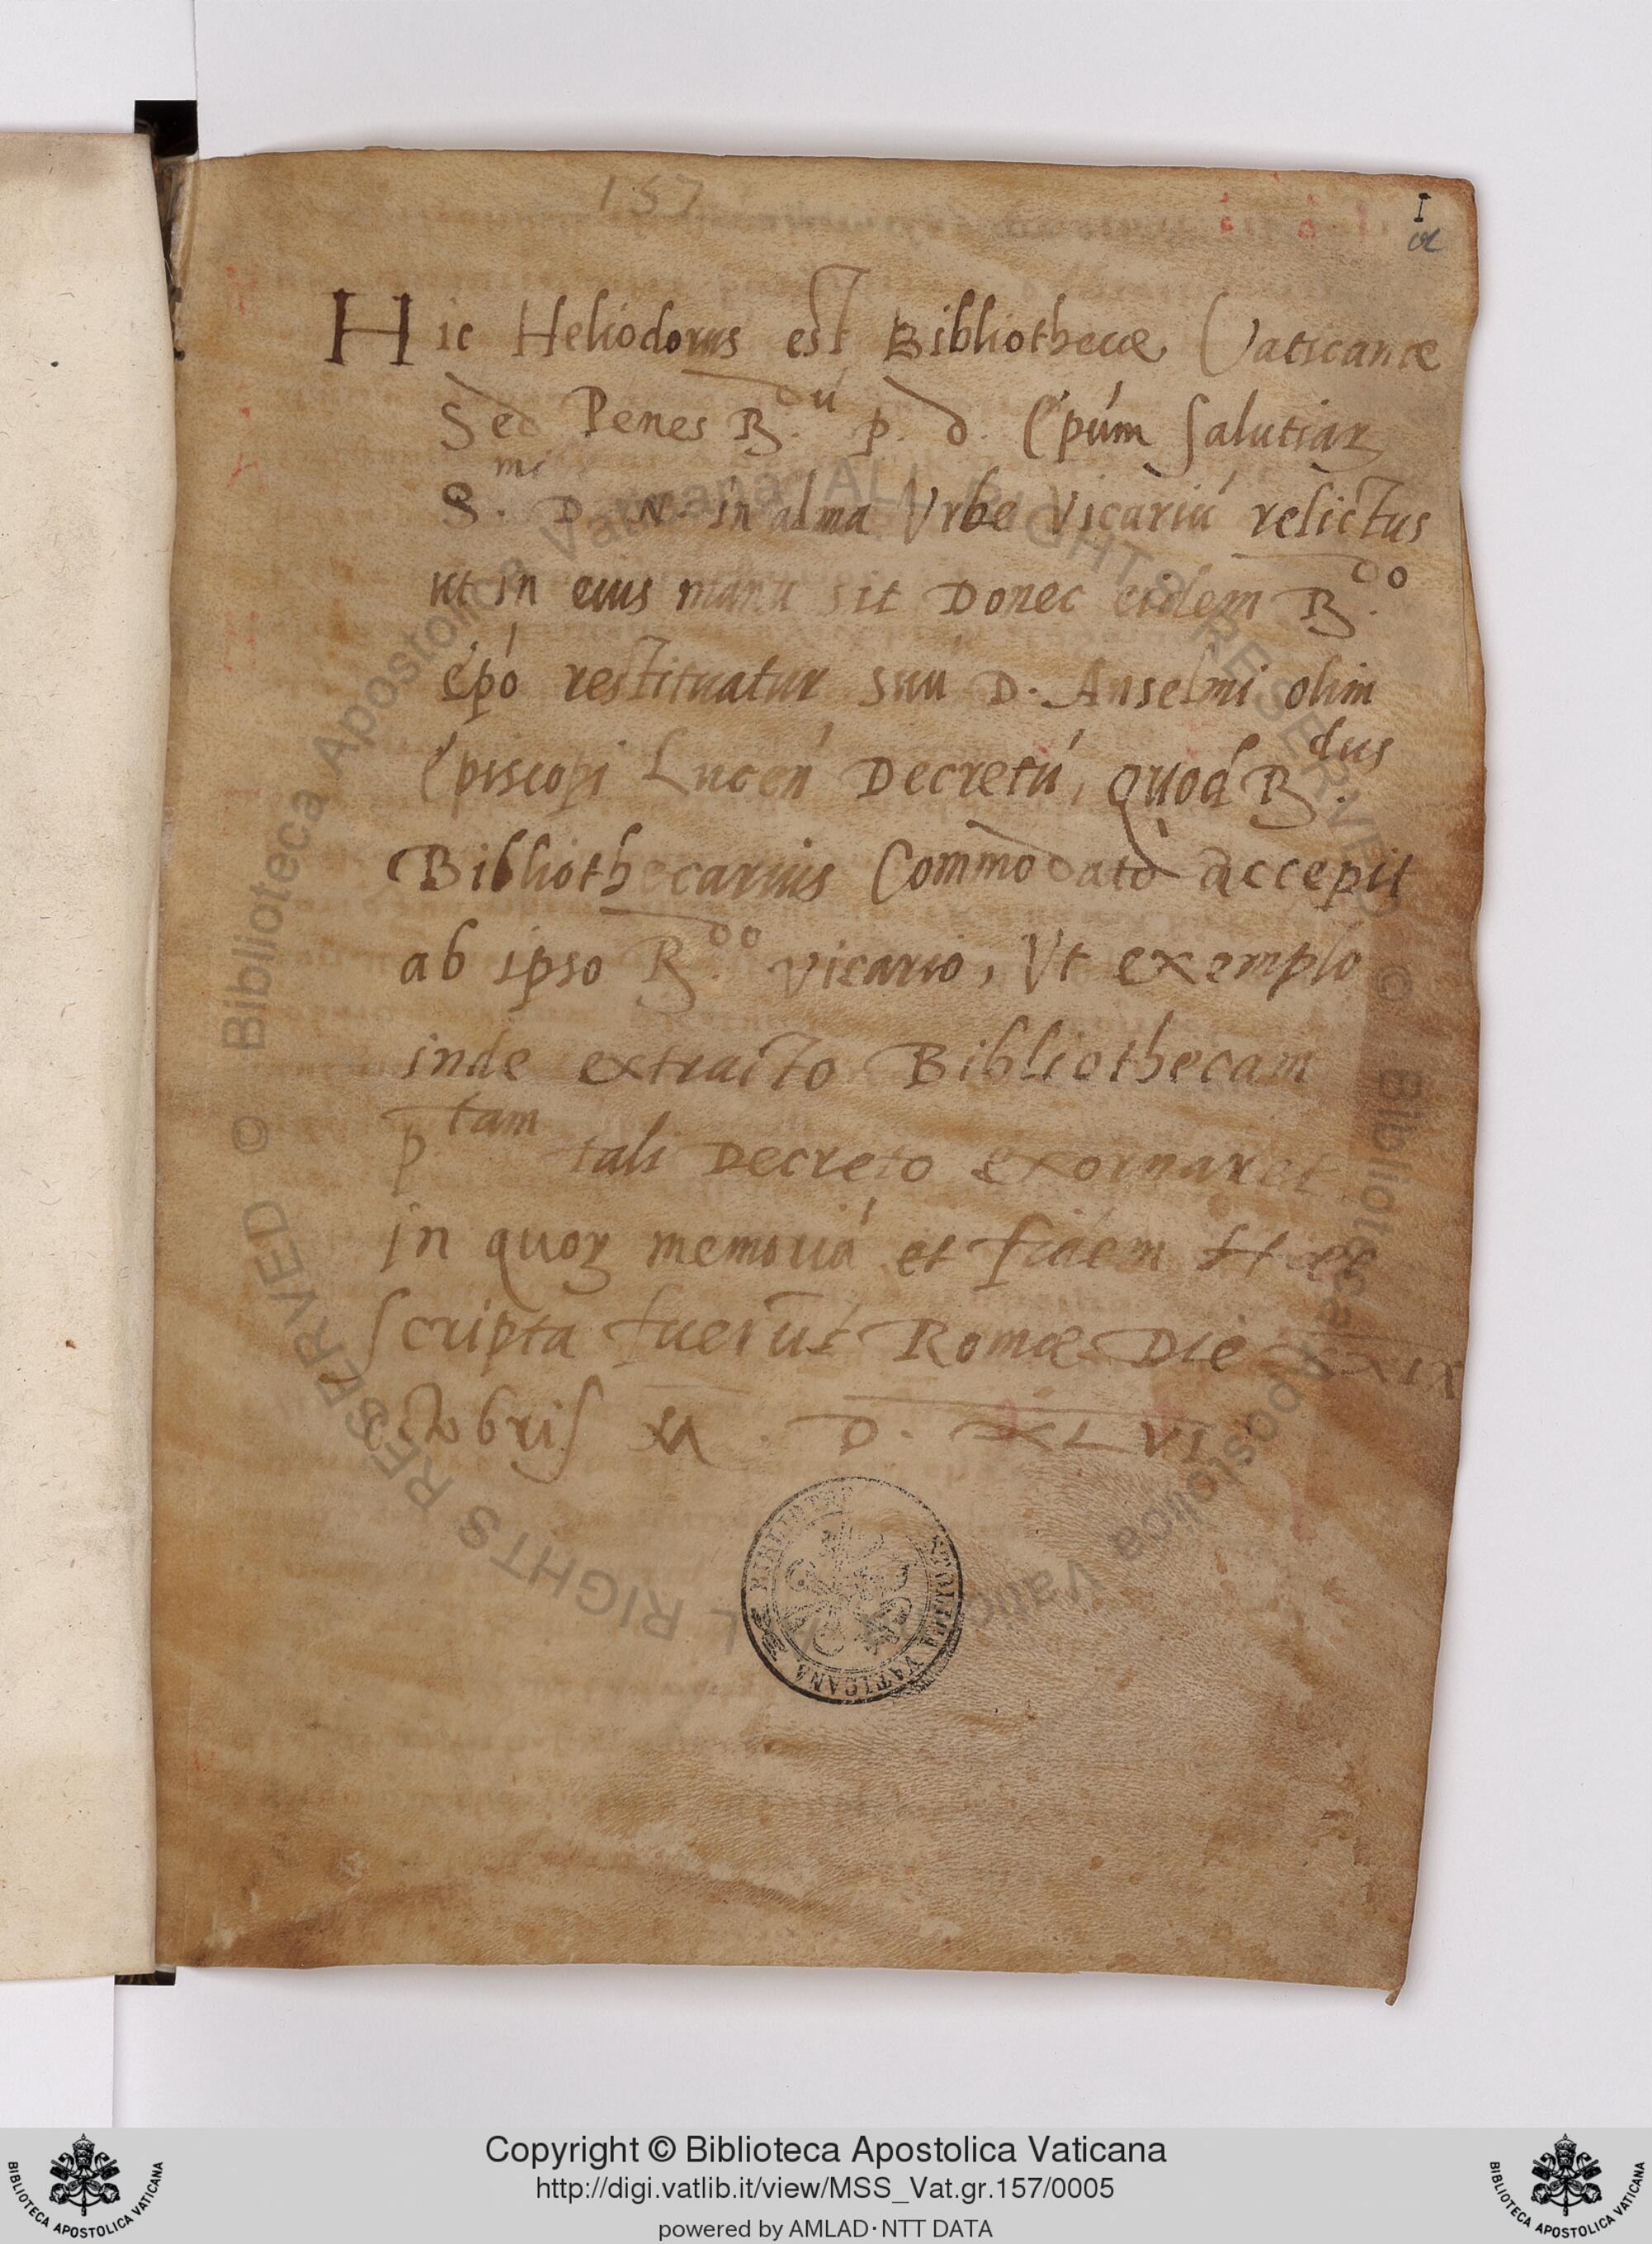 157
I
a
Hic Heliodorus est Bibliothecæ Vaticanæ
Sed Penes R.dū p. d. Epūm Salutiar
S.mi D. N. in alma Vrbe Vicariū relictus
ut in eius manu sit Donec eidem R.do
epō restituatur suū D. Anselmi olim
Episcopi Lucen̄ Decretū, quod R.dus
Bibliothecarius Commodato accepit
ab ipso R.do vicario, Vt exemplo
inde extracto Bibliothecam
p.tam tali Decreto exornaret
In quor memoriā et fidem Hæc
scripta fuerūt Romæ Die XXIX
octobris M. D. XLVI
BIBLIOTECA APOSTOLICA VATICANA
© Biblioteca Apostolica Vaticana ALL RIGHTS RESERVED © Biblioteca Apostolica Vaticana ALL RIGHTS RESERVED
Copyright © Biblioteca Apostolica Vaticana
http://digi.vatlib.it/view/MSS_Vat.gr.157/0005
powered by AMLAD·NTT DATA
BIBLIOTECA APOSTOLICA VATICANA